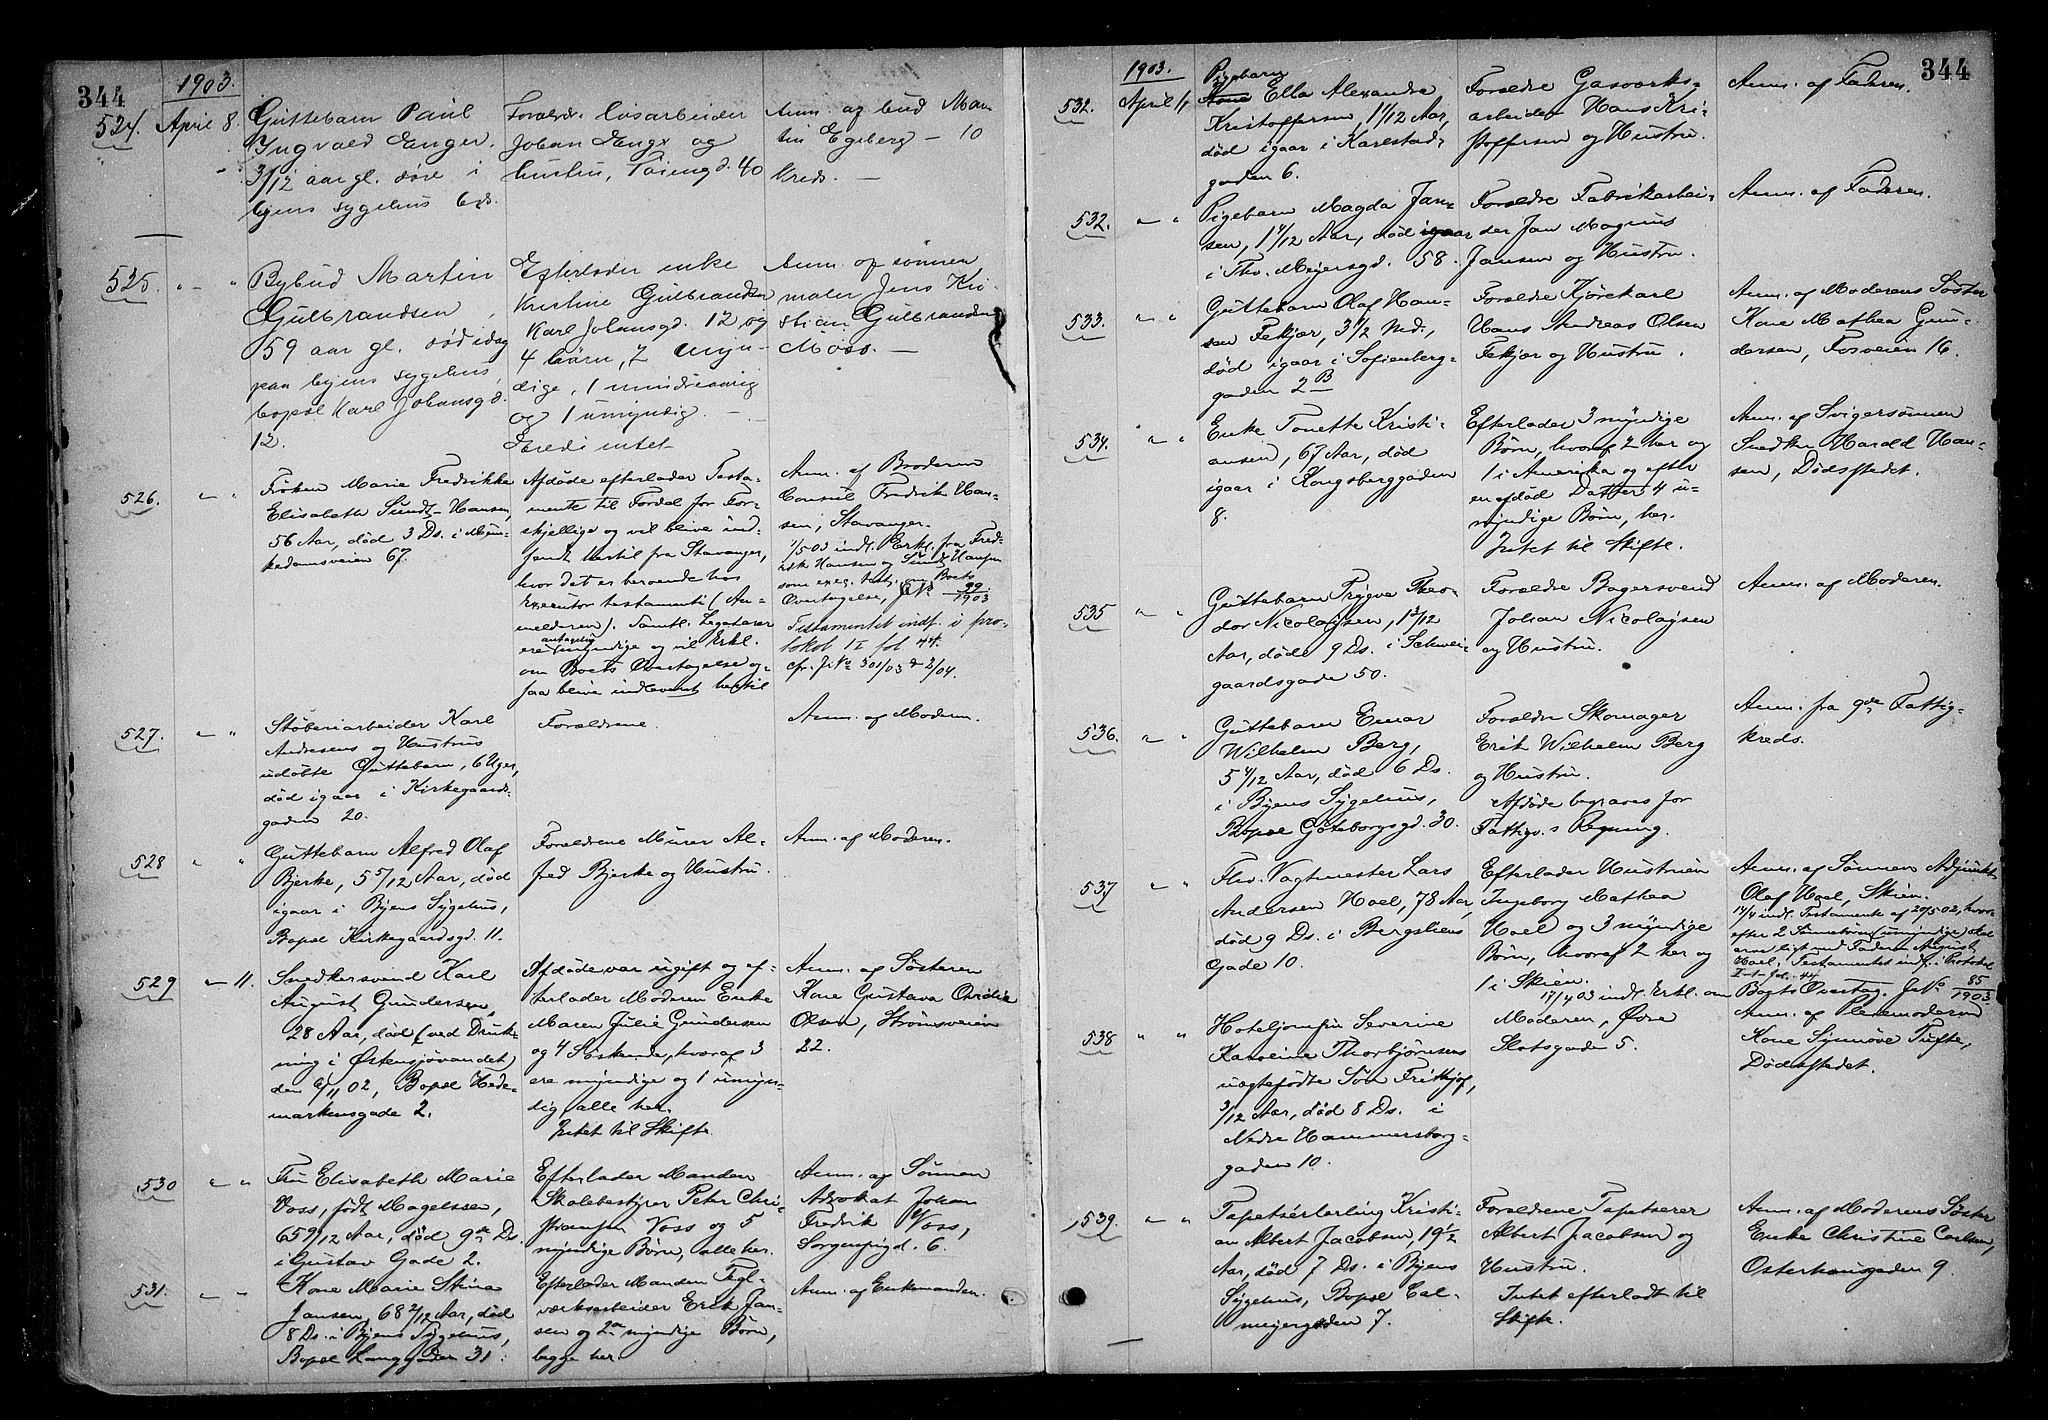 344
1903.
524. April 8.
Guttebarn Paul
Ingvald Enger.
3/12 aar gl. døde i
byens sygehus 6 ds.
Forældr. løsarbeider
Johan Enger og
hustru, Tøiengd. 40
Anm. ag bud Mar
tin Egeberg – 10
kreds. —
525. " "
Bybud Martin
Gulbrandsen,
59 aar gl. død idag
paa byens sygehus,
bopæl Karl Johansgd.
12.
Efterlader enke
Kristine Gulbrandsen
Karl Johansgd. 12 og
4 børn, 2 myn-
dige, 1 mindreaarig
og 1 umyndig. —
Eredi intet
Anm. af sønnen
maler Jens Kri-
stian Gulbrandsen
Moss. —
526. " "
Frøken Marie Fredrikke
Elisabeth Sundt-Hansen,
56 Aar, død 3 Ds. i Mun-
kedamsveien 67.
Afdøde efterlader Testa-
mente til Fordel for For-
skjellige og vil blive ind-
sendt hertil fra Stavanger,
hvor det er beroende hos
Executor testamenti (An-
melderen). Samtl. Legatarer
ere antagelig myndige og vil Erkl.
om Boets Overtagelse og-
saa blive indleveret hertil
Anm. af Broderen
Consul Fredrik Han-
sen, Stavanger.
1/5 03 indl. Erkl. fra Fred-
rik Hansen og Sundt Hansen
som exeq. test. om Boets
Overtagelse, J№ 99/1903
Testamentet indf. i pro-
tokol I fol 44.
cfr. J.№ 301/03 & 2/04.
527. " "
Støberiarbeider Karl
Andresens og Hustrus
udøbte Guttebarn, 6 Uger,
død igaar i Kirkegaards-
gaden 20.
Forældrene.
Anm. af Moderen.
528 " "
Guttebarn Alfred Olaf
Bjerke, 5 5/12 Aar, død
igaar i Byens Sygehus,
Bopæl Kirkegaardsgd. 11.
Forældrene Murer Al-
fred Bjerke og Hustru.
Anm. af Moderen.
529 " 11.
Snedkersvend Karl
August Gundersen,
28 Aar, død (ved Druk-
ning i Østensjøvandet)
den 6/11 02, Bopæl Hede-
markensgade 2.
Afdøde var ugift og ef-
terlader Moderen Enke
Maren Julie Gundersen
og 4 Søskende, hvoraf 3
ere myndige og 1 umyn-
dig, alle her.
Intet til Skifte.
Anm. af Søsteren
Kone Gustava Ovidia
Olsen, Strømsveien
22.
530 " "
Fru Elisabeth Marie
Voss, født Magelssen,
65 9/12 Aar, død 9de Ds.
i Gustav Gade 2.
Efterlader Manden
Skolebestyrer Peter Chri-
stransen Voss og 5
myndige Børn, alle her.
Anm. af Sønnen
Advokat Johan
Fredrik Voss,
Sorgenfrigd. 6.
531. " "
Kone Marie Stina
Jansen, 68 2/12 Aar, død
8 Ds. i Byens Sygehus,
Bopæl Langgaden 31.
Efterlader Manden Tegl-
værksarbeider Erik Jan-
sen og 2de myndige Børn,
begge her.
Anm. af Enkemanden.
344
1903.
532. April 11
Pigebarn
Kone Ella Alexandra
Kristoffersen, 1 1/12 Aar,
død igaar i Karlstad-
gaden 6.
Forældre Gasværks-
arbeider Hans Kri-
stoffersen og Hustru.
Anm. af Faderen.
532. " "
Pigebarn Magda Jan-
sen, 1 4/12 Aar, død igaar
i Thv. Meiersgd. 58.
Forældre Fabrikarbei-
der Jan Magnus
Jansen og Hustru.
Anm. af Faderen.
533. " "
Guttebarn Olaf Han-
sen Fekjær, 3 1/2 Md.,
død igaar i Sofienberg-
gaden 2 B
Forældre Kjørekarl
Hans Andreas Olsen
Fekjær og Hustru.
Anm. af Moderens Søster
Kone Mathea Gun-
dersen, Fosveien 16.
534. " "
Enke Tonette Kristi-
ansen, 67 Aar, død
igaar i Kongsberggaden
8.
Efterlader 3 myndige
Børn, hvoraf 2 her og
1 i Amerika og efter
en afdød Datter 4 u-
myndige Børn, her.
Intet til Skifte.
Anm. af Svigersønnen
Snedker Harald Han-
sen, Dødsstedet.
535 " "
Guttebarn Trygve Theo-
dor Nicolaysen, 1 3/12
Aar, døde 9 Ds. i Schwei-
gaardsgade 50.
Forældre Bagersvend
Johan Nicolaysen
og Hustru.
Anm. af Moderen.
536. " "
Guttebarn Einar
Wilhelm Berg,
5 4/12 Aar, død 6 Ds.
i Byens Sygehus,
Bopæl Göteborgsgd. 30.
Forældre Skomager
Erik Wilhelm Berg
og Hustru.
Afdøde begraves for
Fattigv.s Regning.
Anm. fra 9de Fattig-
kreds.
537 " "
Fhv. Vagtmester Lars
Andersen Hoel, 78 Aar,
død 9 Ds. i Bergsliens
Gade 10.
Efterlader Hustruen
Ingeborg Mathea
Hoel og 3 myndige
Børn, hvoraf 2 her og
1 i Skien.
17/4 03 indl. Erkl. om
Anm. af Sønnen Adjunkt
Olaf Hoel, Skien.
17/4 indl. Testamente af 20/5 02, hvor-
efter 2 Sønnebørn (umyndige) skal
arve ligt med Faderen August
Hoel. Testamentet indf. i Protokol
I fol. 44
Boets Overtag. J№ 85/1903
538 " "
Hoteljomfru Severine
Karoline Thorbjørnsens
uægtefødte Søn Frithjof,
3/12 Aar, død 8 Ds. i
Nedre Hammersborg-
gaden 10.
Moderen, Øvre
Slotsgade 5.
Anm. af Pleiemoderen
Kone Synnøve Tufte,
Dødsstedet.
539. " "
Tapetsérlærling Kristi-
an Albert Jacobsen, 19 1/2
Aar, død 7 Ds. i Byens
Sygehus, Bopæl Cal-
meyergaden 7.
Forældrene Tapetserer
Albert Jacobsen og
Hustru.
Intet efterladt til
Skifte.
Anm. af Moderens Søster
Enke Christine Carlsen,
Osterhausgaden 9